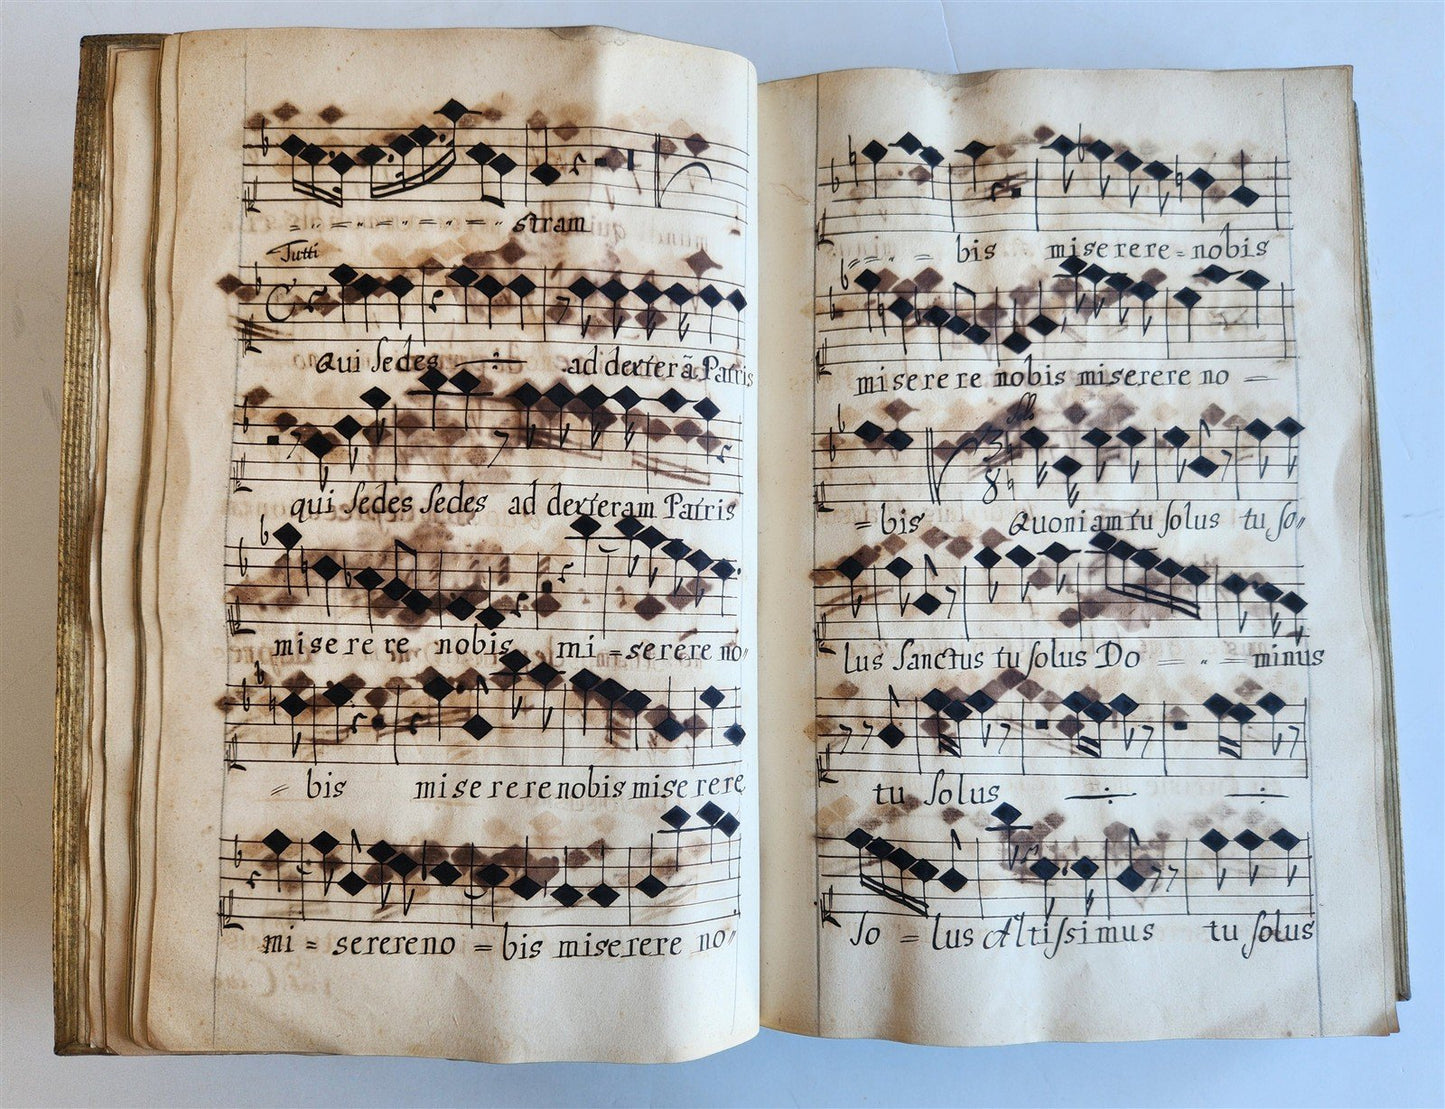 = " = " = " = " = " stram
Tutti
Qui sedes ÷ ad dexterã Patris
qui sedes sedes ad dexteram Patris
miserere nobis mi = serere no"
= bis miserere nobis miserere
mi = serere no = bis miserere no"
= = " = bis miserere = nobis
miserere nobis miserere no =
Solo
3 8
= bis Quoniam tu solus tu so"
lus Sanctus tu solus Do = " = minus
tu solus ÷ ÷
so = lus Altissimus tu solus